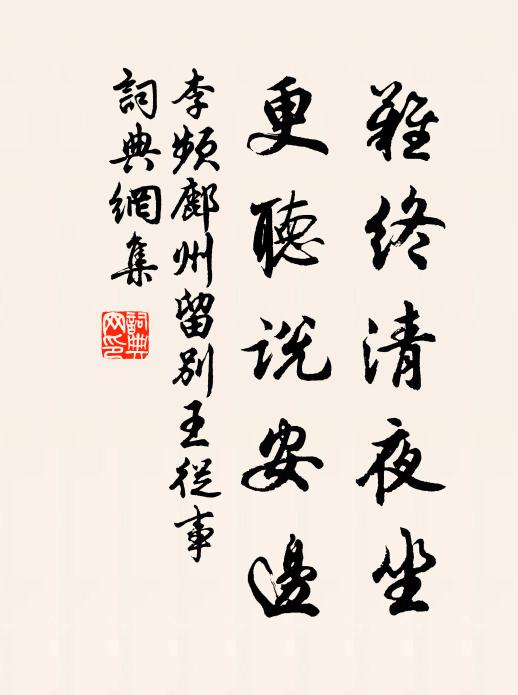 難終清夜坐
更聽説安邊
李頻鄜州留別王從事
詞典網集
詞典網印